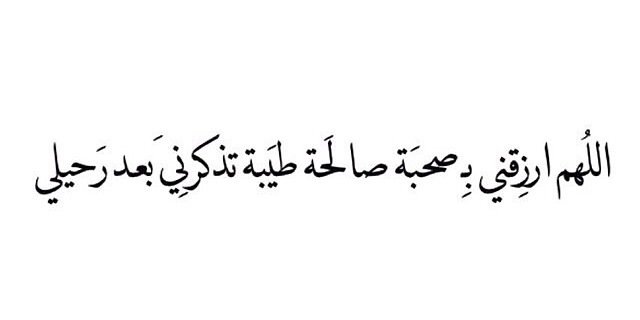 اللُهم ارزِقني بِـ صحبَة صالَحة طيَبة تذكرنِي َبعد رَحيلي